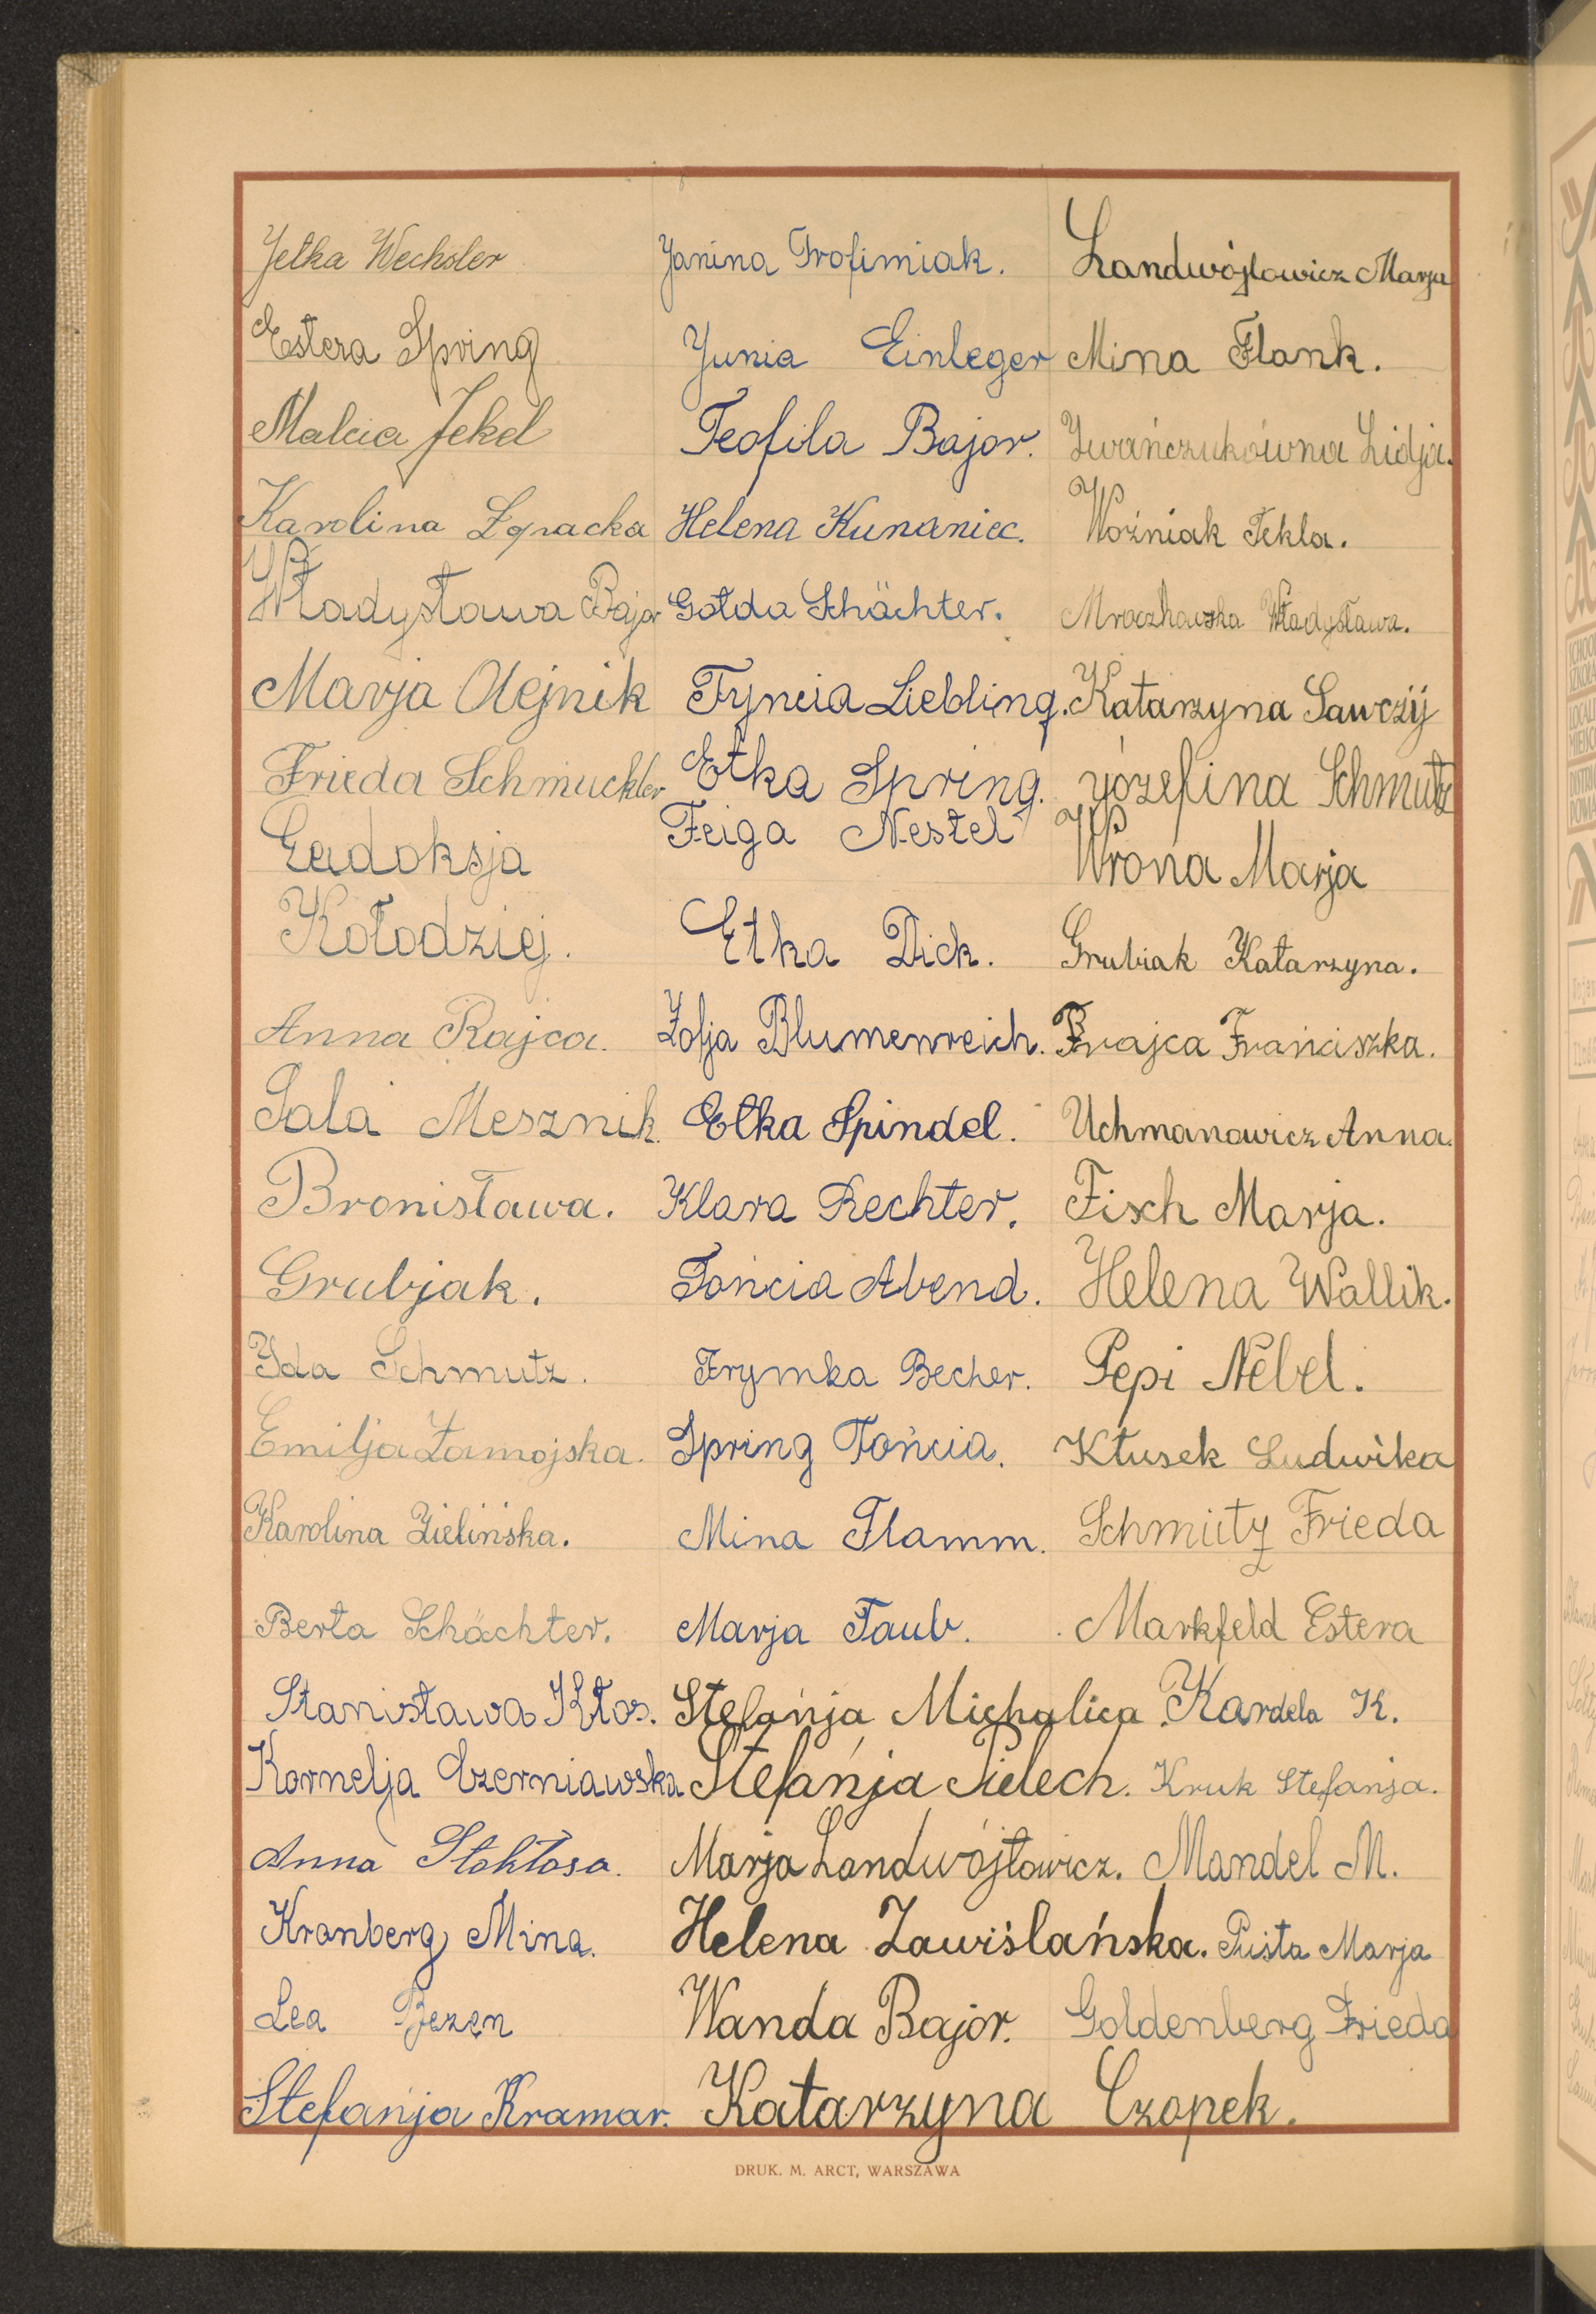 Jetka Wechsler
Estera Spring
Malcia Jekel
Karolina Zgracka
Władysława Bajor
Marja Olejnik
Frieda Schmuckler
Eudoksja
Kołodziej.
Anna Rajca.
Sala Mesznik.
Bronisława.
Grubjak.
Ida Schmutz.
Emilja Zamojska.
Karolina Zielińska.
Berta Schächter.
Stanisława Kłos.
Kornelja Czerniawska
Anna Stokłosa.
Kranberg Mina.
Lea Bezen
Stefanja Kramar.
Janina Trofimiak.
Junia Einleger
Teofila Bajor.
Helena Kunaniec.
Gołda Schächter.
Fyncia Liebling.
Etka Spring.
Feiga Nestel
Etka Dick.
Zofja Blumenreich.
Etka Spindel.
Klara Rechter.
Tońcia Abend.
Frymka Becher.
Spring Tońcia.
Mina Flamm.
Marja Taub.
Stefanja Michalica.
Stefanja Pielech.
Marja Landwójtowicz.
Helena Zawiślańska.
Wanda Bajor.
Katarzyna Czopek.
Landwójtowicz Marja
Mina Flank.
Iwańczukówna Lidja.
Woźniak Tekla.
Mroczkowska Władysława.
Katarzyna Sawczij
Józefina Schmutz
Wrona Marja
Grubiak Katarzyna.
Rajca Franciszka.
Uchmanowicz Anna.
Fisch Marja.
Helena Wallik.
Pepi Nebel.
Kłusek Ludwika
Schmutz Frieda
Markfeld Estera
Kardela K.
Kruk Stefanja.
Mandel M.
Pusta Marja
Goldenberg Frieda
DRUK. M. ARCT, WARSZAWA